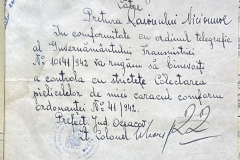 Către
Pretura Raionului
În conformitate cu ordinul telegrafic
al Guvernământului Transnistriei
No 10141/942 va rugăm să binevoiți
a controla cu strictețe Colectarea
pielicelelor de miei caracul conform
ordonanței No 41/942.
Prefect Jud. Oceacov
Lt. Colonel
22